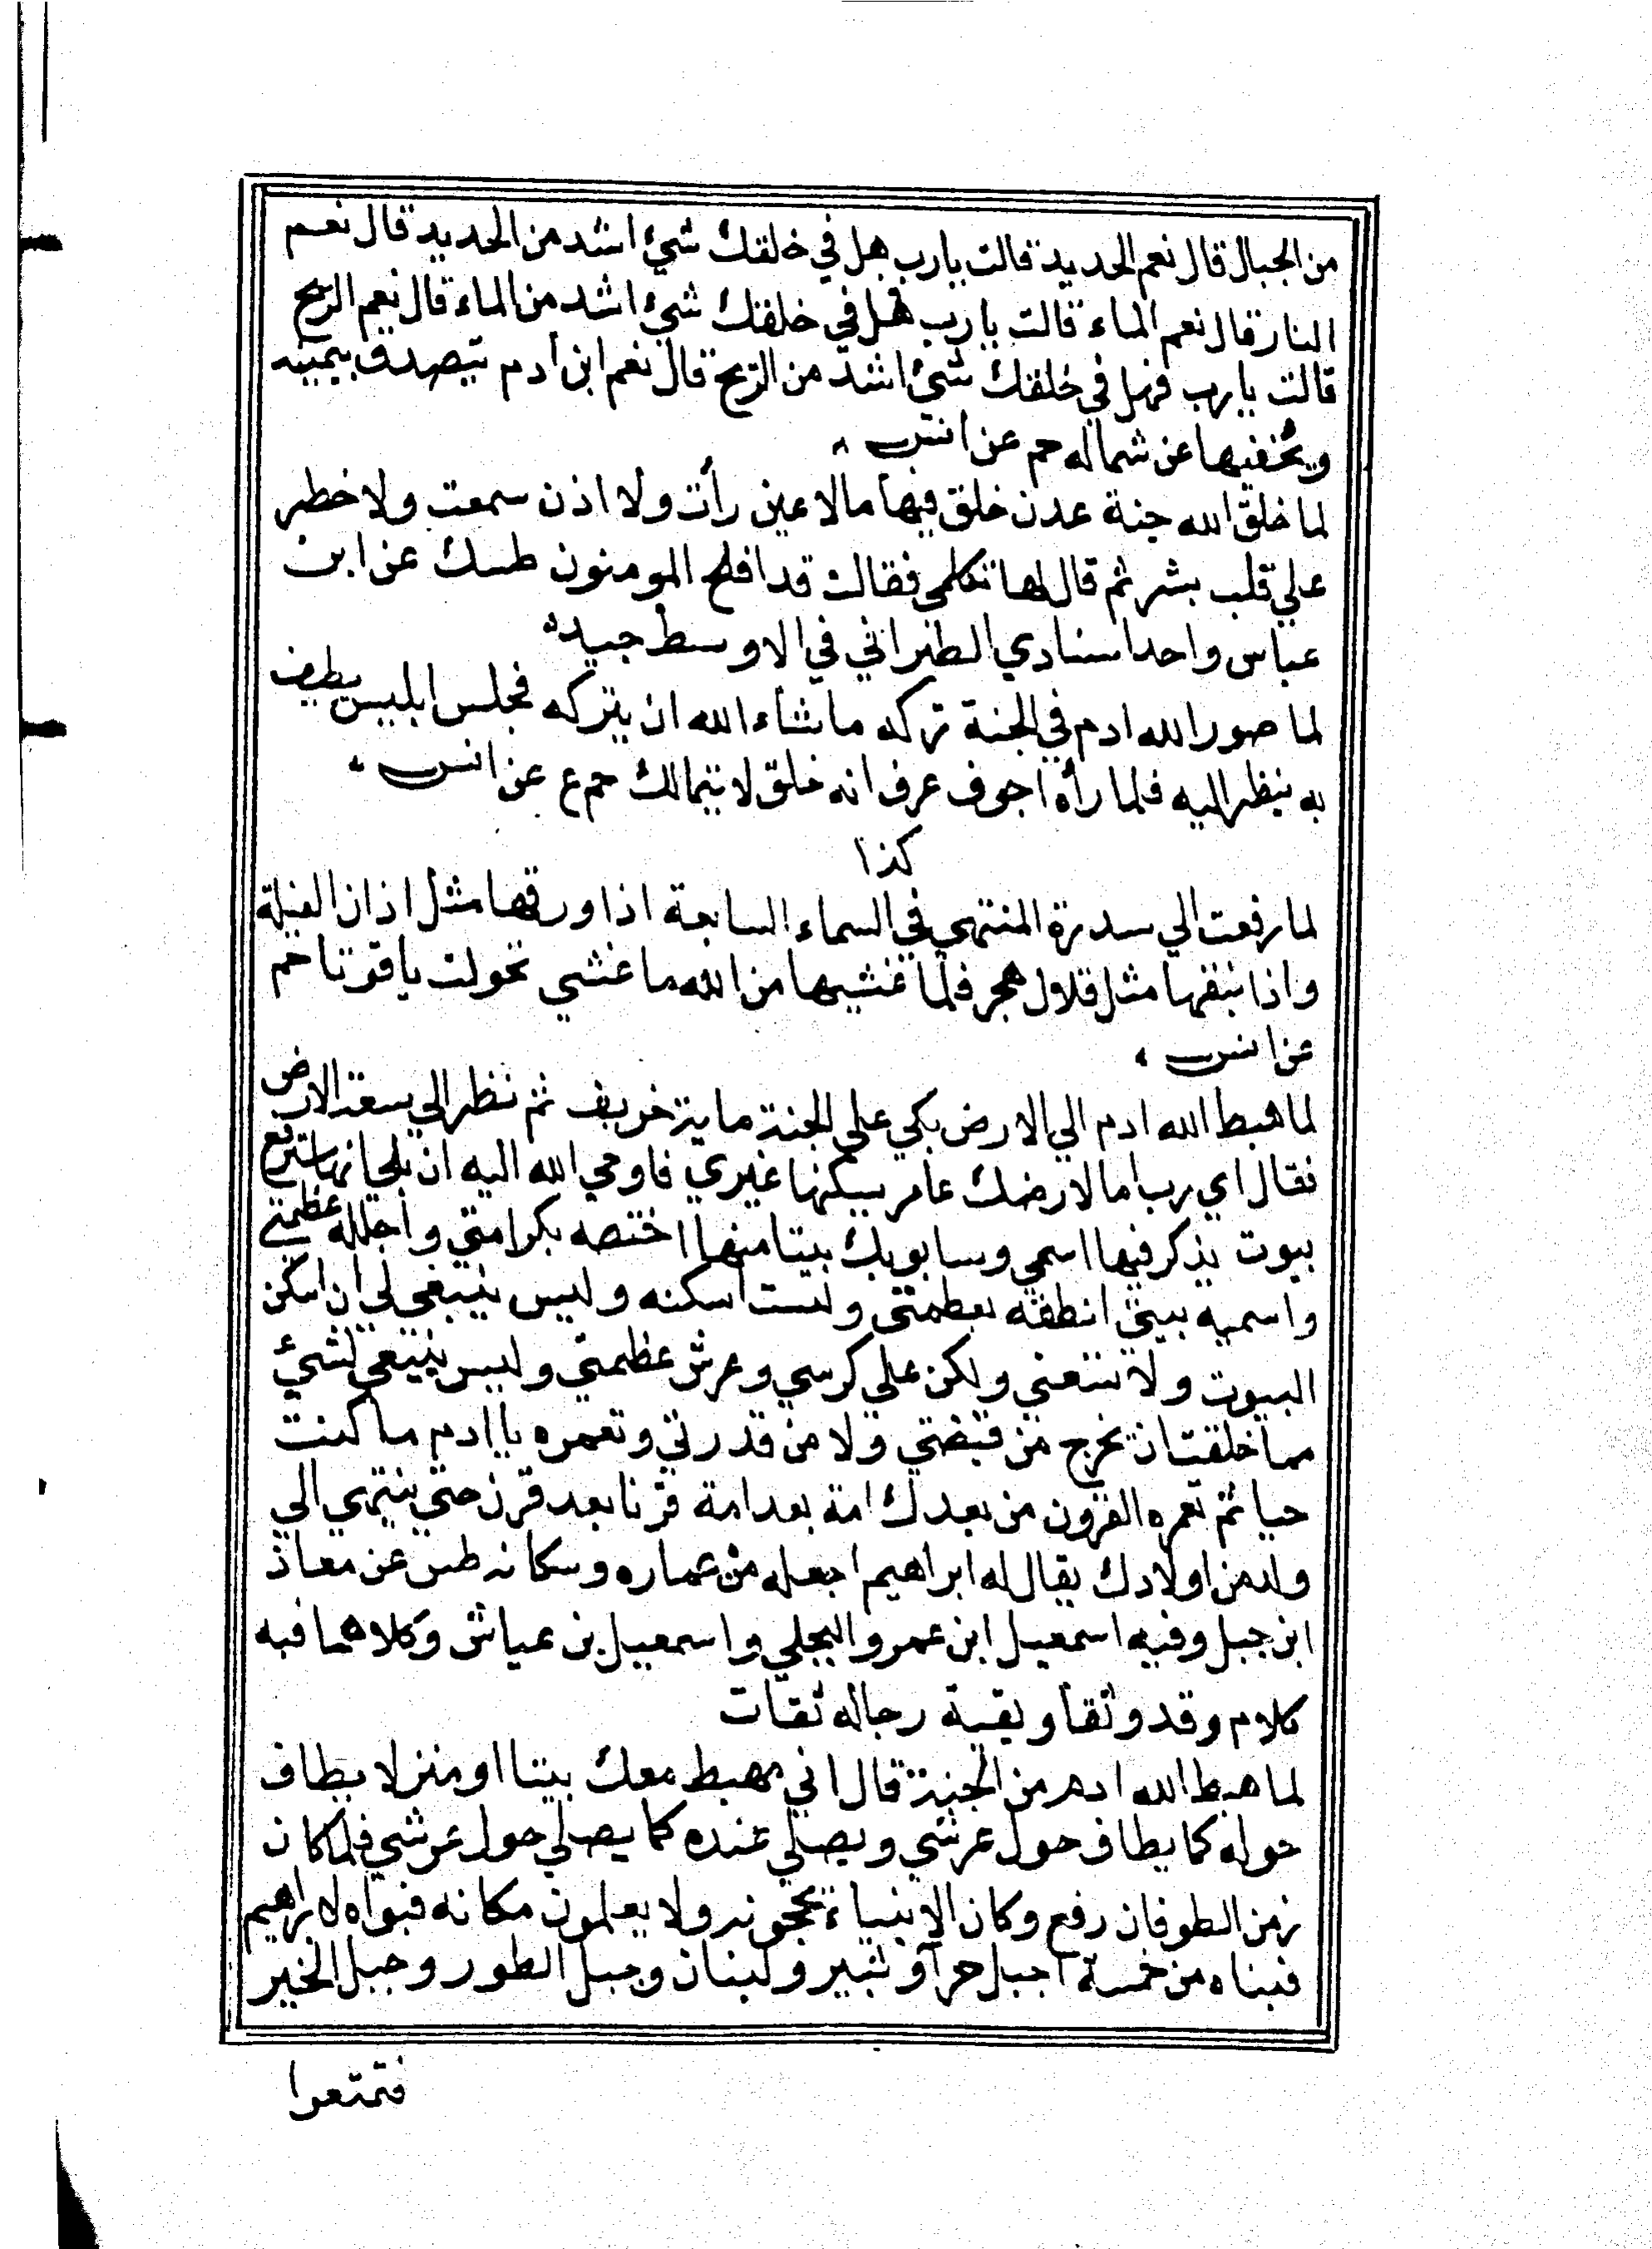 من الجبال قال نعم الحديد قالت يارب هل في خلقك شيئ اشد من الحديد قال نعم
النار قال نعم الماء قالت يارب فهل في خلقك شيئ اشد من الماء قال نعم الريح
قالت يارب فهل في خلقك شيئ اشد من الريح قال نعم ابن ادم يتصدق بيمينه
ويخفيها عن شماله حم عن انس
لما خلق الله جنة عدن خلق فيها مالا عين رأت ولا اذن سمعت ولا خطر
علي قلب بشر ثم قال لها تكلمي فقالت قد افلح المومنون طسك عن ابن
عباس واحد اسنادي الطبراني في الاوسط جيد
لما صور الله ادم في الجنة تركه ماشاء الله ان يتركه فجلس ابليس يطيف
به ينظر اليه فلما رأه اجوف عرف انه خلق لا يتمالك حم ع عن انس
كذا
لما رفعت الي سدرة المنتهي في السماء السابعة اذا ورقها مثل اذان الفيلة
واذا نبقها مثل قلال هجر فلما غشيها من الله ما غشي تحولت ياقوتا حم
عن انس
لما هبط الله ادم الي الارض بكي علي الجنة ماية خريف ثم نظر الي سعة الارض
فقال اي رب اما لارضك عامر يسكنها غيري فاوحي الله اليه ان بلي انها سترفع
بيوت يذكر فيها اسمي وسابويك بيتا منها اختصه بكرامتي واجلله عظمتي
واسميه بيتي انطقه بعظمتي ولست اسكنه وليس ينبغي لي ان اسكن
البيوت ولا تسعني ولكن علي كرسي وعرش عظمتي وليس ينبغي لشيئ
مما خلقت ان يخرج من قبضتي ولا من قدرتي وتعمره يا ادم ما كنت
حيا ثم تعمره القرون من بعدك امة بعد امة قرنا بعد قرن حتي ينتهي الي
ولد من اولادك يقال له ابراهيم اجعله من عماره وسكانه طس عن معاذ
ابن جبل وفيه اسمعيل ابن عمرو البجلي واسمعيل بن عياش وكلاهما فيه
كلام وقد وثقا وبقية رجاله ثقات
لما هبط الله ادم من الجنة قال اني مهبط معك بيتا او منزلا يطاف
حوله كما يطاف حول عرشي ويصلي عنده كما يصلي حول عرشي فلما كان
زمن الطوفان رفع وكان الانبياء يحجونه ولا يعلمون مكانه فبواه لابراهيم
فبناه من خمسة اجبل حرآ وثبير ولبنان وجبل الطور وجبل الخير
فتمتعوا